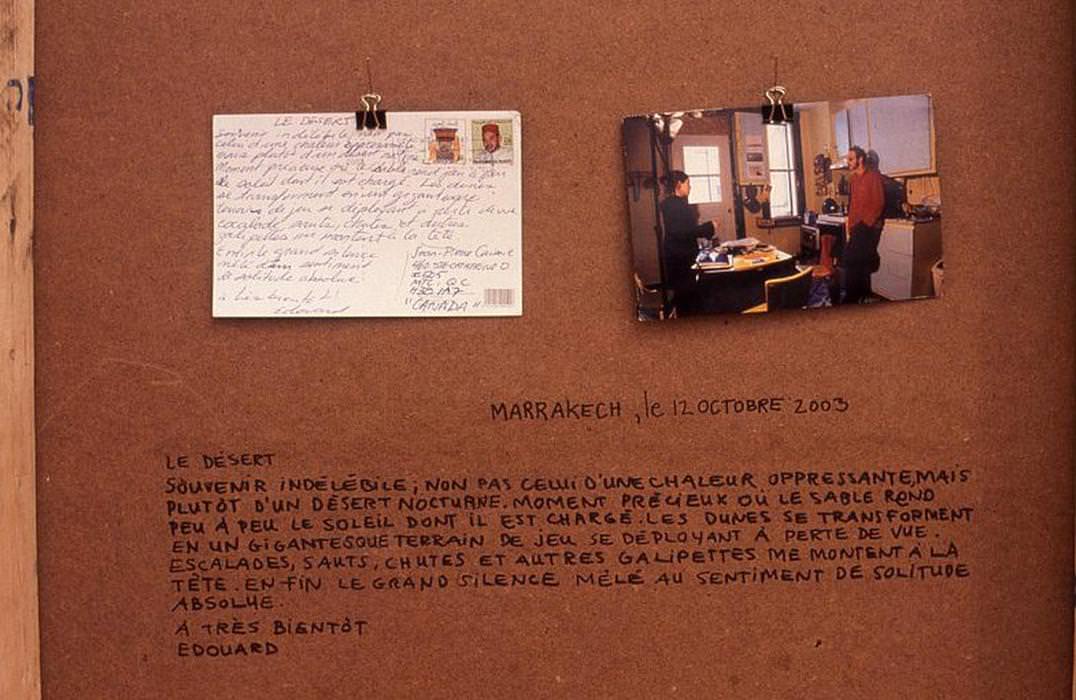 LE DESERT
Souvenir indélébile, non pas
celui d'une chaleur oppressante
mais plutôt d'un désert
moment précieux où le sable rend peu à peu
le soleil dont il est chargé. Les dunes
se transforment en un gigantesque
terrain de jeu se déployant à perte de vue
escalade, sauts, chutes et autres
galipettes me montent à la tête
Enfin le grand silence
mêlé au sentiment
de solitude absolue
à très bientôt!
Edouard
Jean-Pierre
460 STE CATHERINE O
MTL. QC
H3B 1A7
"CANADA"
MARRAKECH, le 12 OCTOBRE 2003
LE DÉSERT
SOUVENIR INDÉLÉBILE; NON PAS CELUI D'UNE CHALEUR OPPRESSANTE, MAIS
PLUTÔT D'UN DÉSERT NOCTURNE. MOMENT PRÉCIEUX OÙ LE SABLE REND
PEU À PEU LE SOLEIL DONT IL EST CHARGÉ. LES DUNES SE TRANSFORMENT
EN UN GIGANTESQUE TERRAIN DE JEU SE DÉPLOYANT À PERTE DE VUE.
ESCALADES, SAUTS, CHUTES ET AUTRES GALIPETTES ME MONTENT À LA
TÊTE. EN FIN LE GRAND SILENCE MÊLÉ AU SENTIMENT DE SOLITUDE
ABSOLUE.
À TRÈS BIENTÔT
EDOUARD